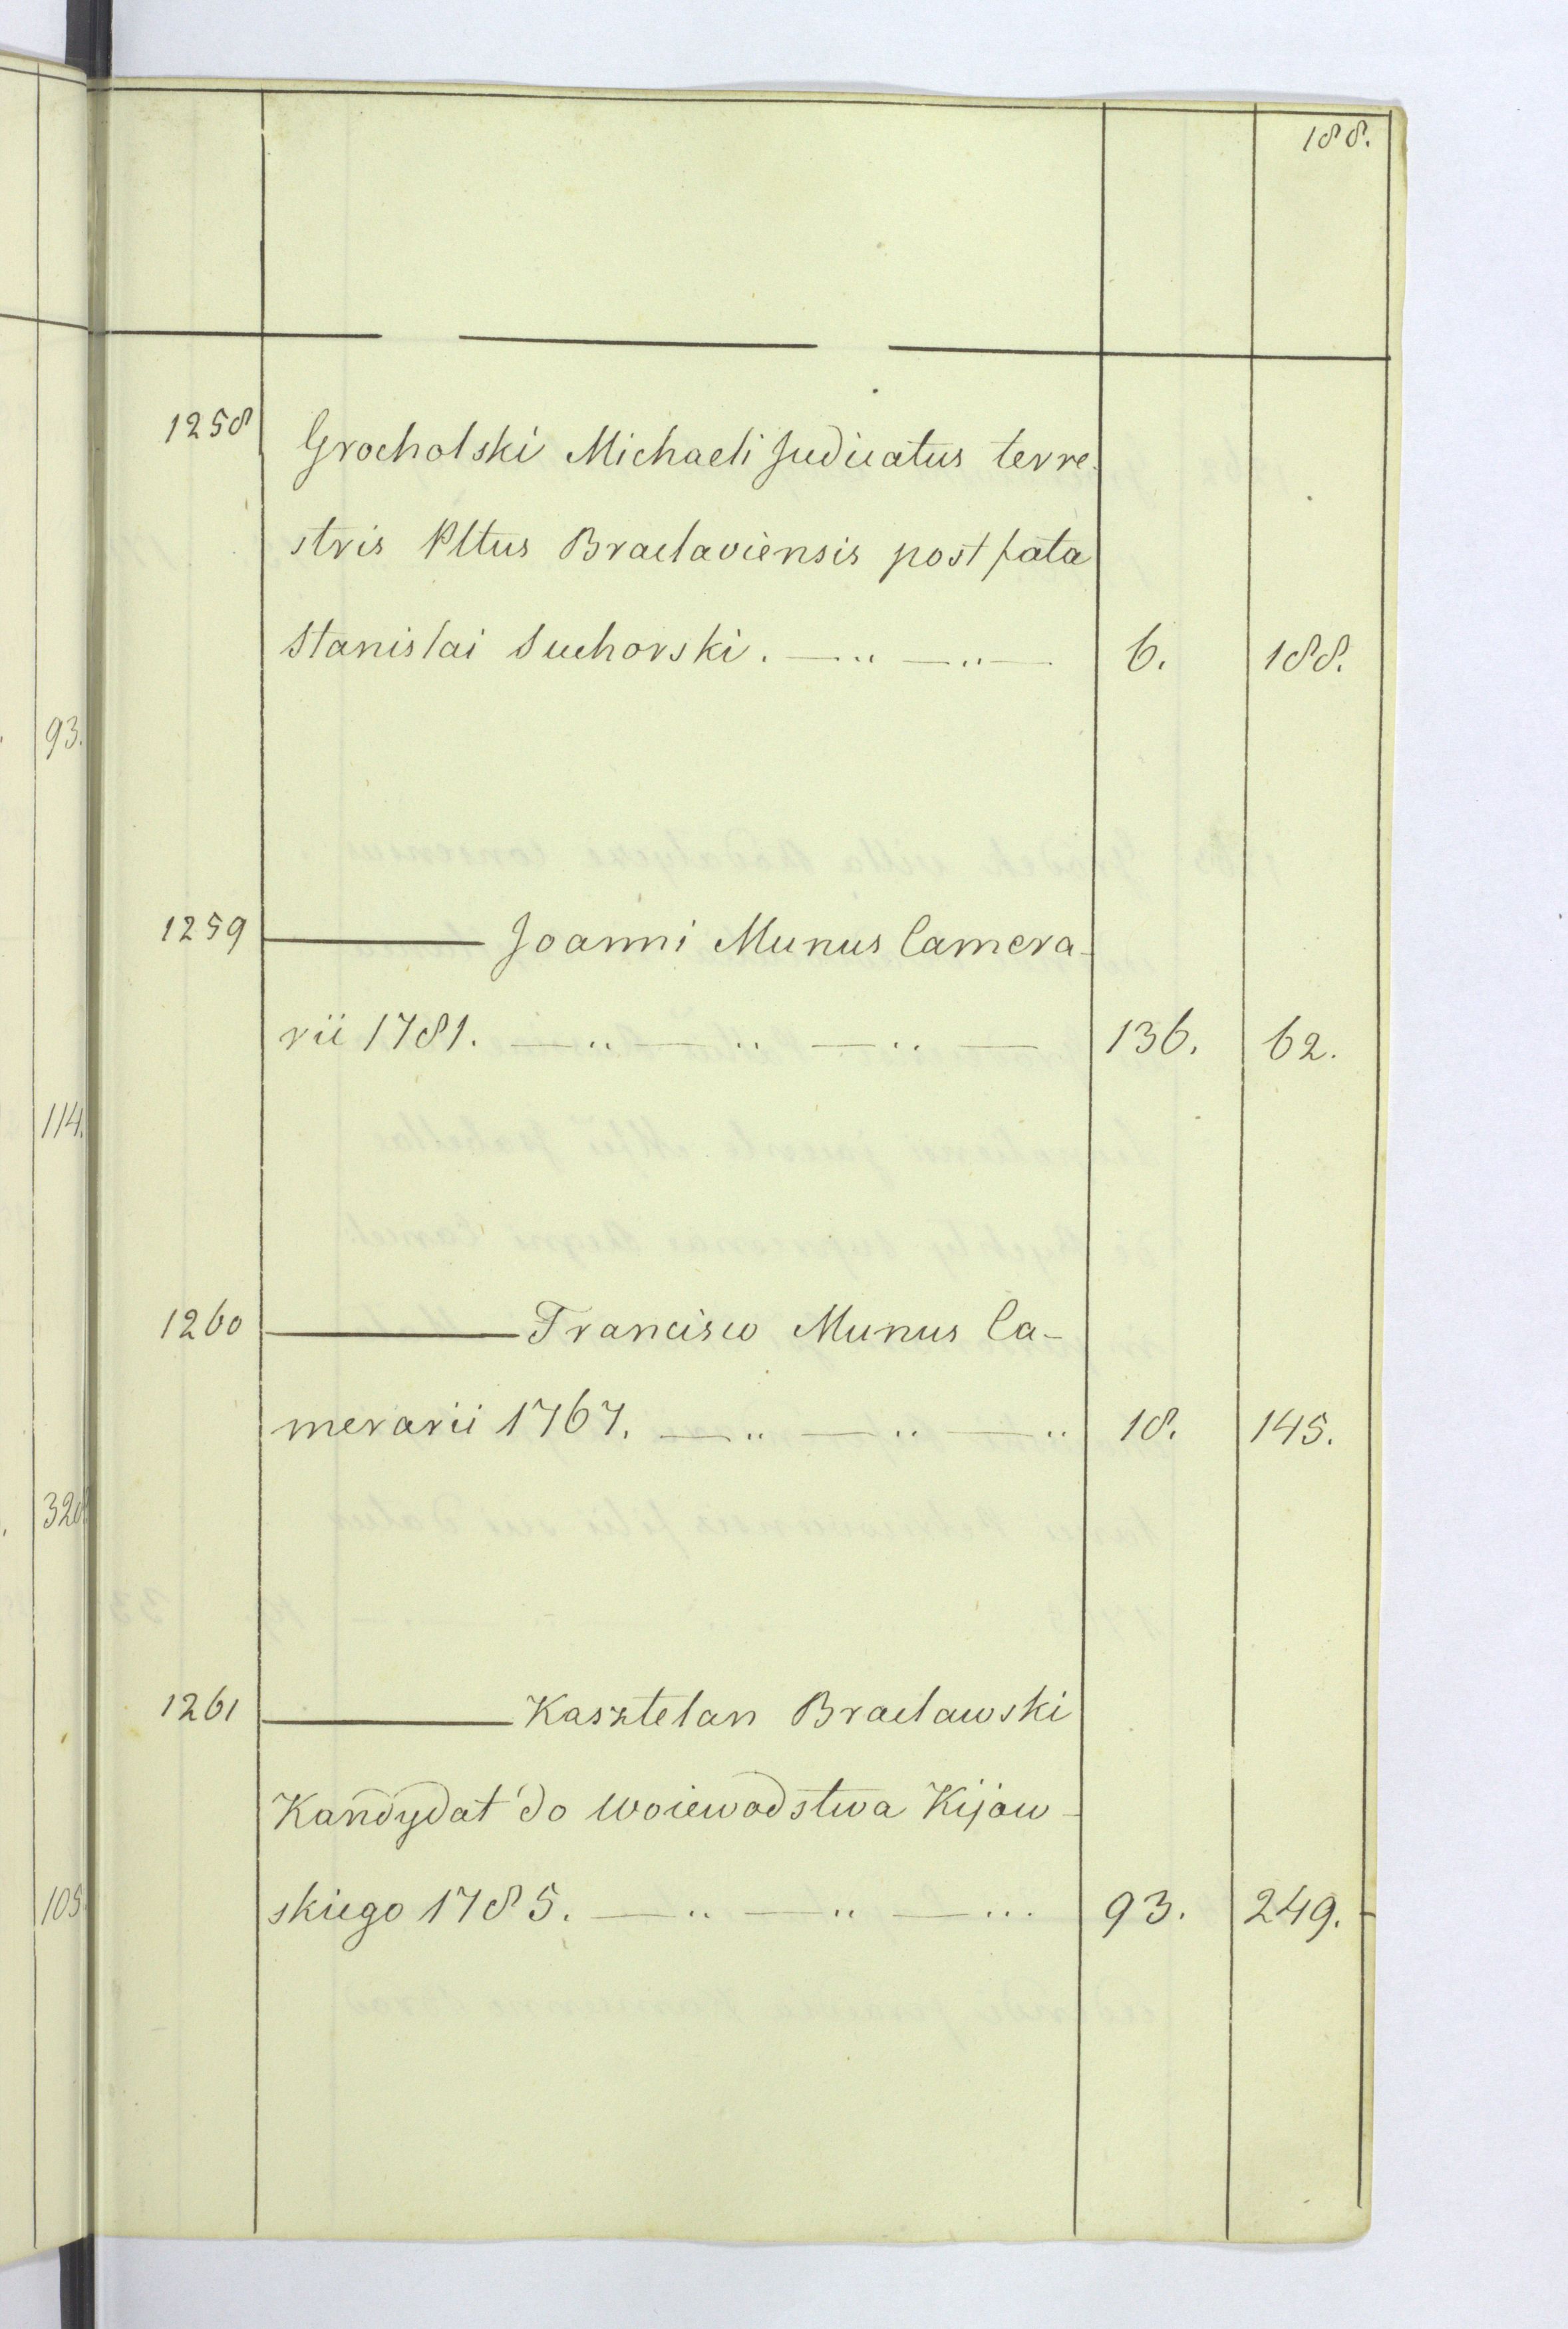 188.
1258 Grocholski Michaeli Judicatus terre-
stris Pltus Braclaviensis post fata
Stanislai Suchorski. —„—„— 6. 188.
1259 ——— Joanni Munus Camera-
rii 1781. —„—„—„— 136. 62.
1260 ——— Francisco Munus Ca-
merarii 1767. —„—„—„ 18. 145.
1261 ——— Kasztelan Bracławski
Kandydat do Woiewodstwa Kijow-
skiego 1785. —„—„—... 93. 249.
93.
114.
320.
105.